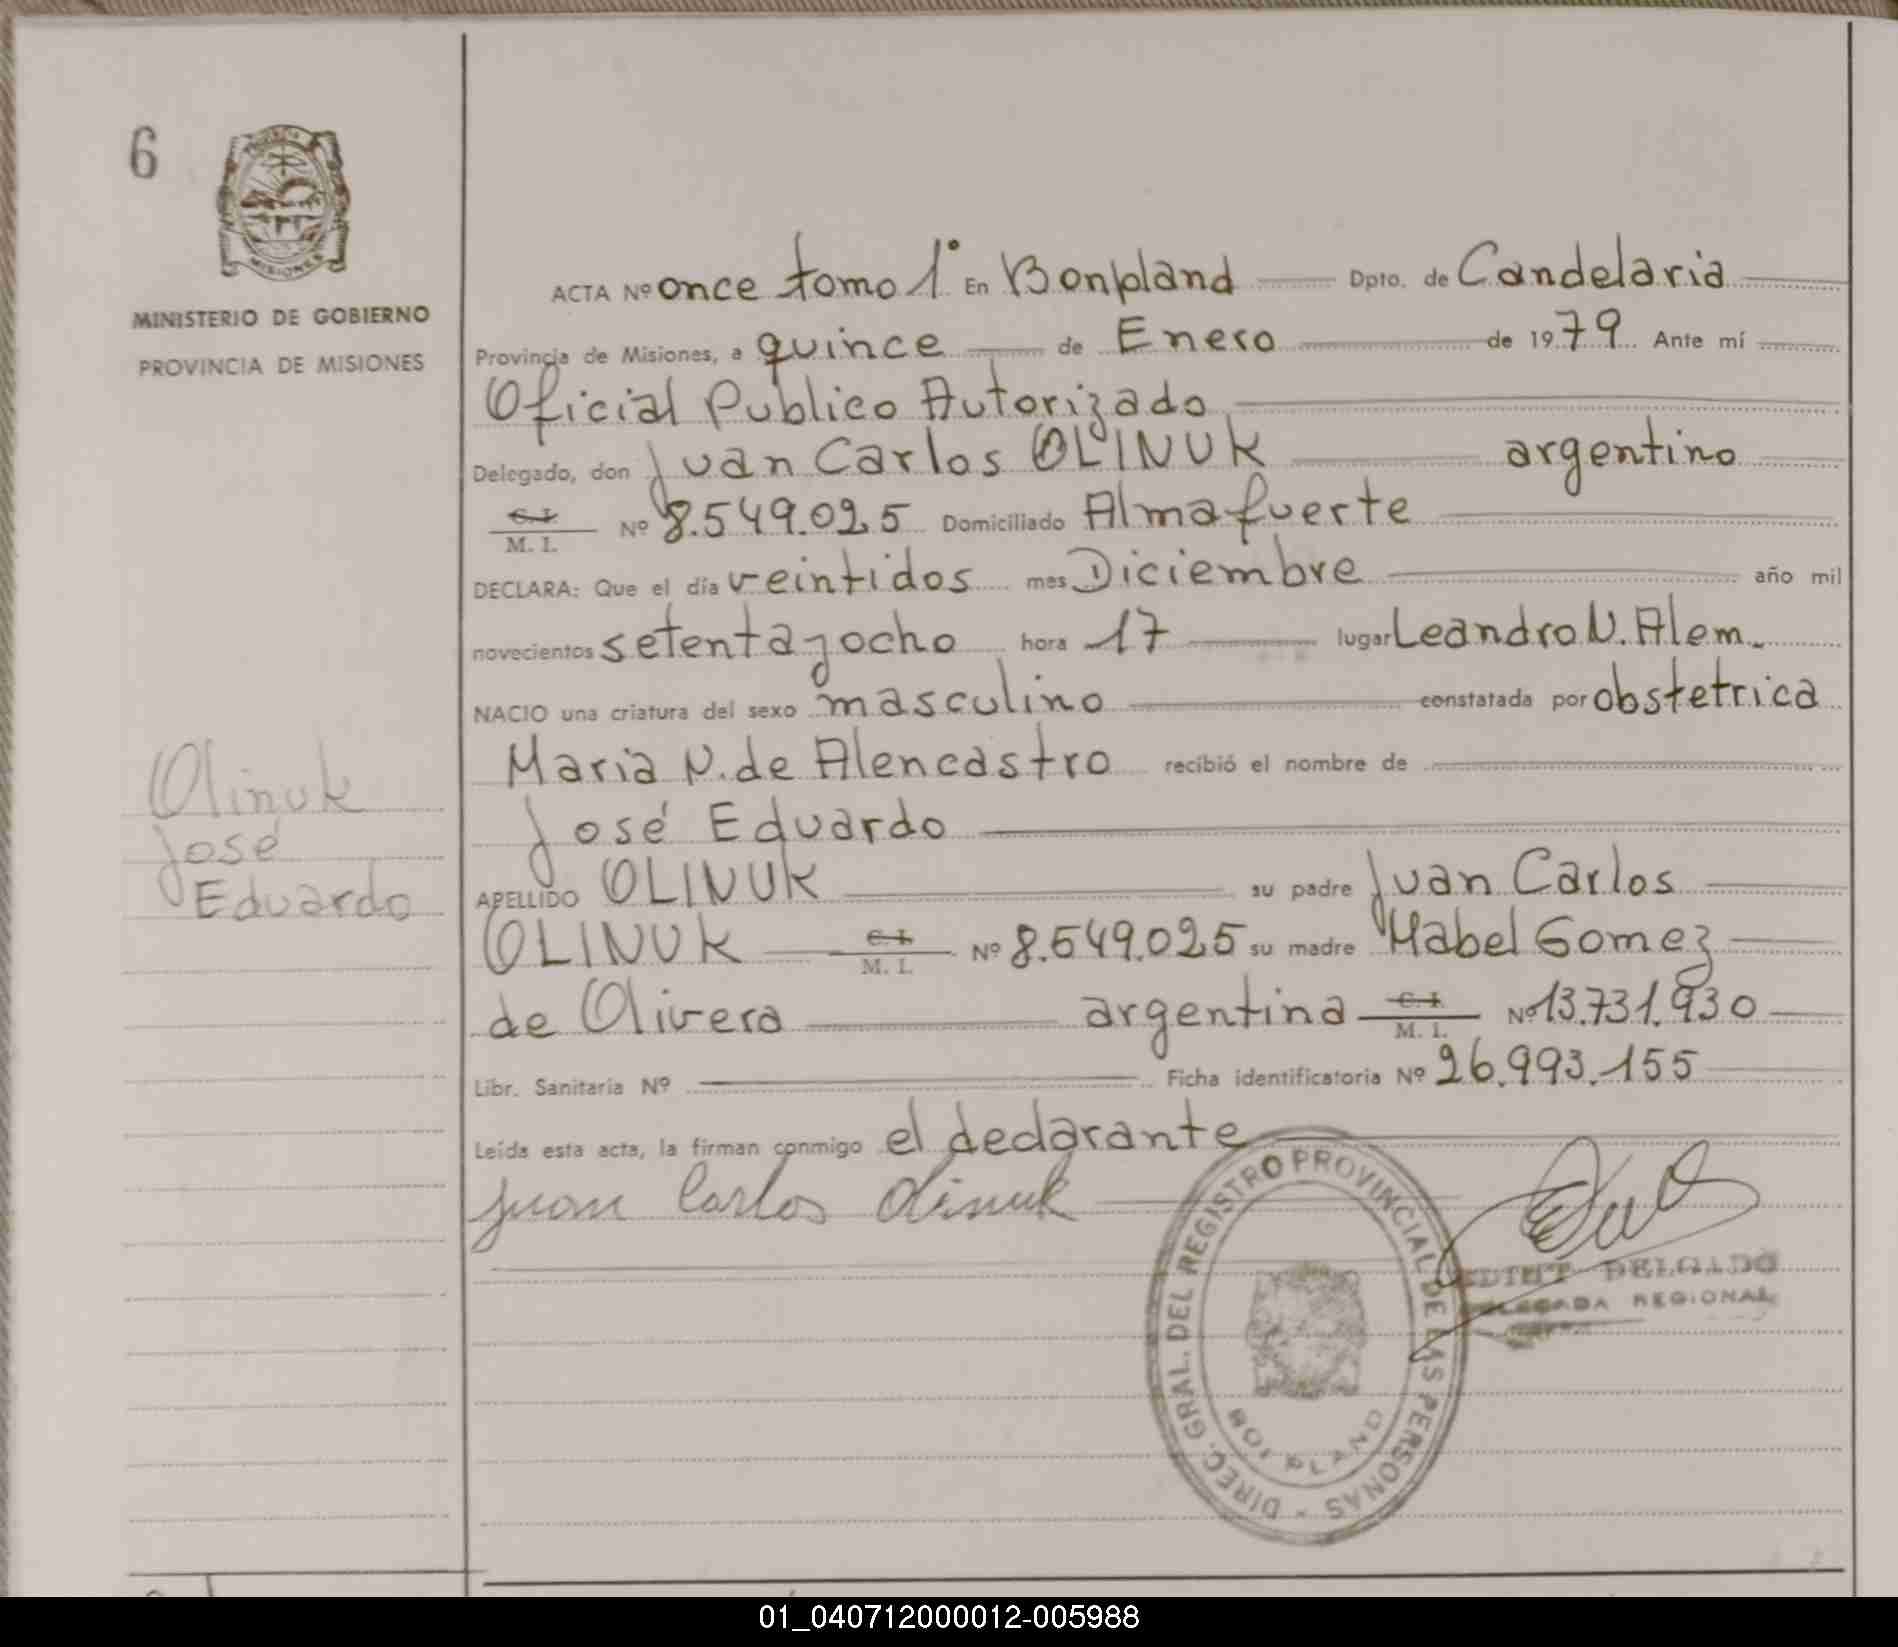 6
MINISTERIO DE GOBIERNO
PROVINCIA DE MISIONES
Olinuk
José
Eduardo
ACTA Nº once tomo 1º En Bonpland Dpto. de Candelaria
Provincia de Misiones, a quince de Enero de 1979 Ante mí
Oficial Publico Autorizado
Delegado, don Juan Carlos OLINUK argentino
C. I. / M. I. Nº 8.549.025 Domiciliado Almafuerte
DECLARA: Que el día veintidos mes Diciembre año mil
novecientos setenta y ocho hora 17 lugar Leandro N. Alem.
NACIO una criatura del sexo masculino constatada por obstetrica
Maria N. de Alencastro recibió el nombre de
José Eduardo
APELLIDO OLINUK su padre Juan Carlos
OLINUK C. I. / M. I. Nº 8.549.025 su madre Mabel Gomez
de Olivera argentina C. I. / M. I. Nº 13.731.930
Libr. Sanitaria Nº Ficha identificatoria Nº 26.993.155
Leída esta acta, la firman conmigo el declarante
Juan Carlos Olinuk
DIREC. GRAL. DEL REGISTRO PROVINCIAL DE LAS PERSONAS
BONPLAND
DELGADO
DELEGADA REGIONAL
01_040712000012-005988